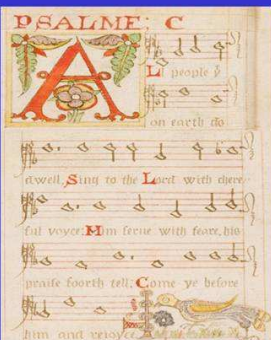 PSALME C
A
LL people yͭ
on earth do
dwell, Sing to the Lord with chere
ful voyce, Him serve with feare, his
praise foorth tell, Come ye before
him and rejoyce.